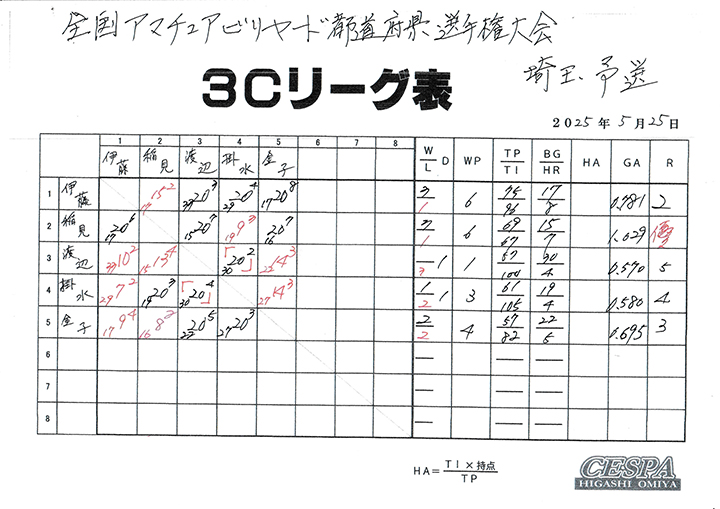 全国アマチュアビリヤード都道府県選手権大会
埼玉予選
3Cリーグ表
2025年5月25日
1 2 3 4 5 6 7 8 W/L D WP TP/TI BG/HR HA GA R
伊藤 稲見 渡辺 掛水 金子
1 伊藤 17 15 2 20 3 20 4 17 20 8 3/1 6 75/96 17/8 0.781 2
2 稲見 17 20 6 15 20 7 19 9 3 16 20 7 3/1 6 69/67 15/7 1.029
3 渡辺 10 2 15 13 4 30 20 2 22 14 3 /3 1 1 57/100 4 0.570 5
4 掛水 29 7 2 19 20 3 30 20 4 27 14 3 1/2 1 3 61/105 19/4 0.580 4
5 金子 17 9 4 16 8 2 22 20 5 27 20 3 2/2 4 57/82 22/5 0.695 3
6
7
8
HA=TI×持点/TP
CESPA
HIGASHI OMIYA